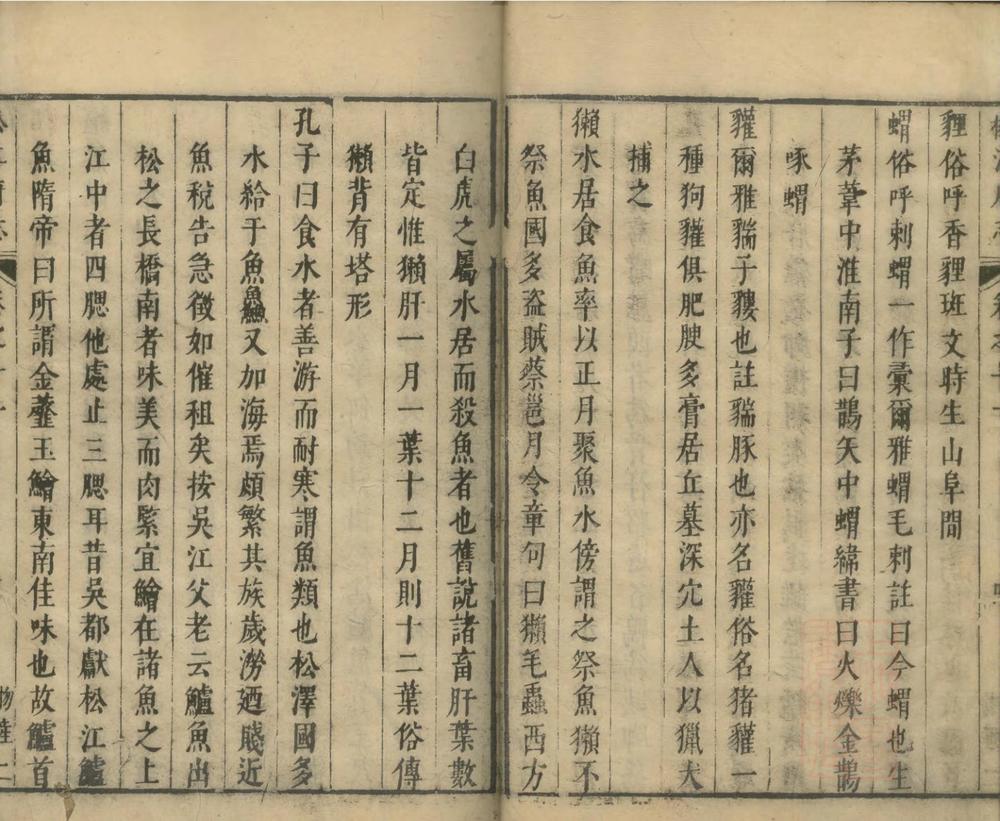 貍俗呼香貍斑文時生山阜間
蝟俗呼刺蝟一作彚爾雅蝟毛刺註曰今蝟也生
茅葦中淮南子曰鵲矢中蝟緯書曰火爍金鵲
啄蝟
貛爾雅貒子貗也註貒豚也亦名貛俗名猪貛一
種狗貛俱肥腴多膏居丘墓深穴土人以獵犬
捕之
獺水居食魚率以正月聚魚水傍謂之祭魚獺不
祭魚國多盗賊蔡邕月令章句曰獺毛蟲西方
白虎之屬水居而殺魚者也舊說諸畜肝葉數
皆定惟獺肝一月一葉十二月則十二葉俗傳
獺背有塔形
孔子曰食水者善游而耐寒謂魚類也松澤國多
水給于魚鱻又加海焉頗繁其族歲澇廼賤近
魚稅告急徵如催租矣按吳江父老云鱸魚出
松之長橋南者味美而肉緊宜鱠在諸魚之上
江中者四腮他處止三腮耳昔吳都獻松江鱸
魚隋帝曰所謂金虀玉鱠東南佳味也故鱸首
物產二